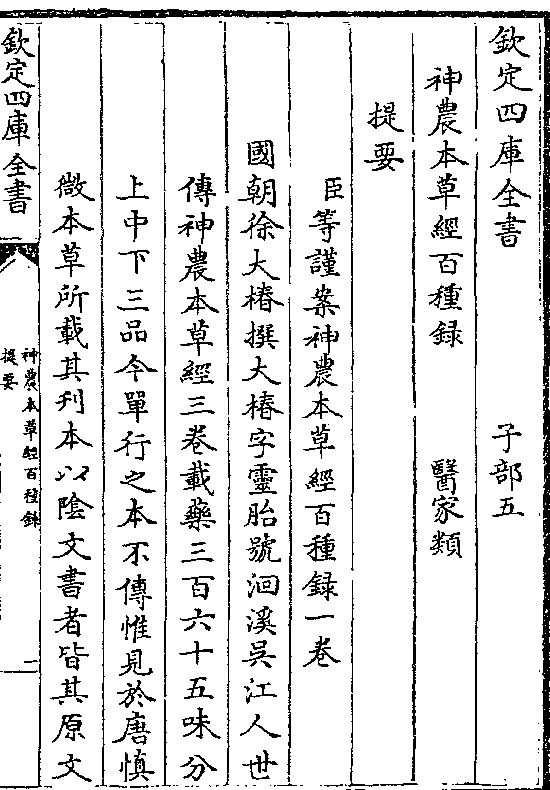 欽定四庫全書　　　　子部五
神農本草經百種録　　　醫家類
提要
臣等謹案神農本草經百種録一卷
國朝徐大椿撰大椿字靈胎號洄溪吳江人世
傳神農本草經三卷載藥三百六十五味分
上中下三品今單行之本不傳惟見於唐慎
微本草所載其刋本以陰文書者皆其原文
欽定四庫全書
神農本草經百種録
提要
一